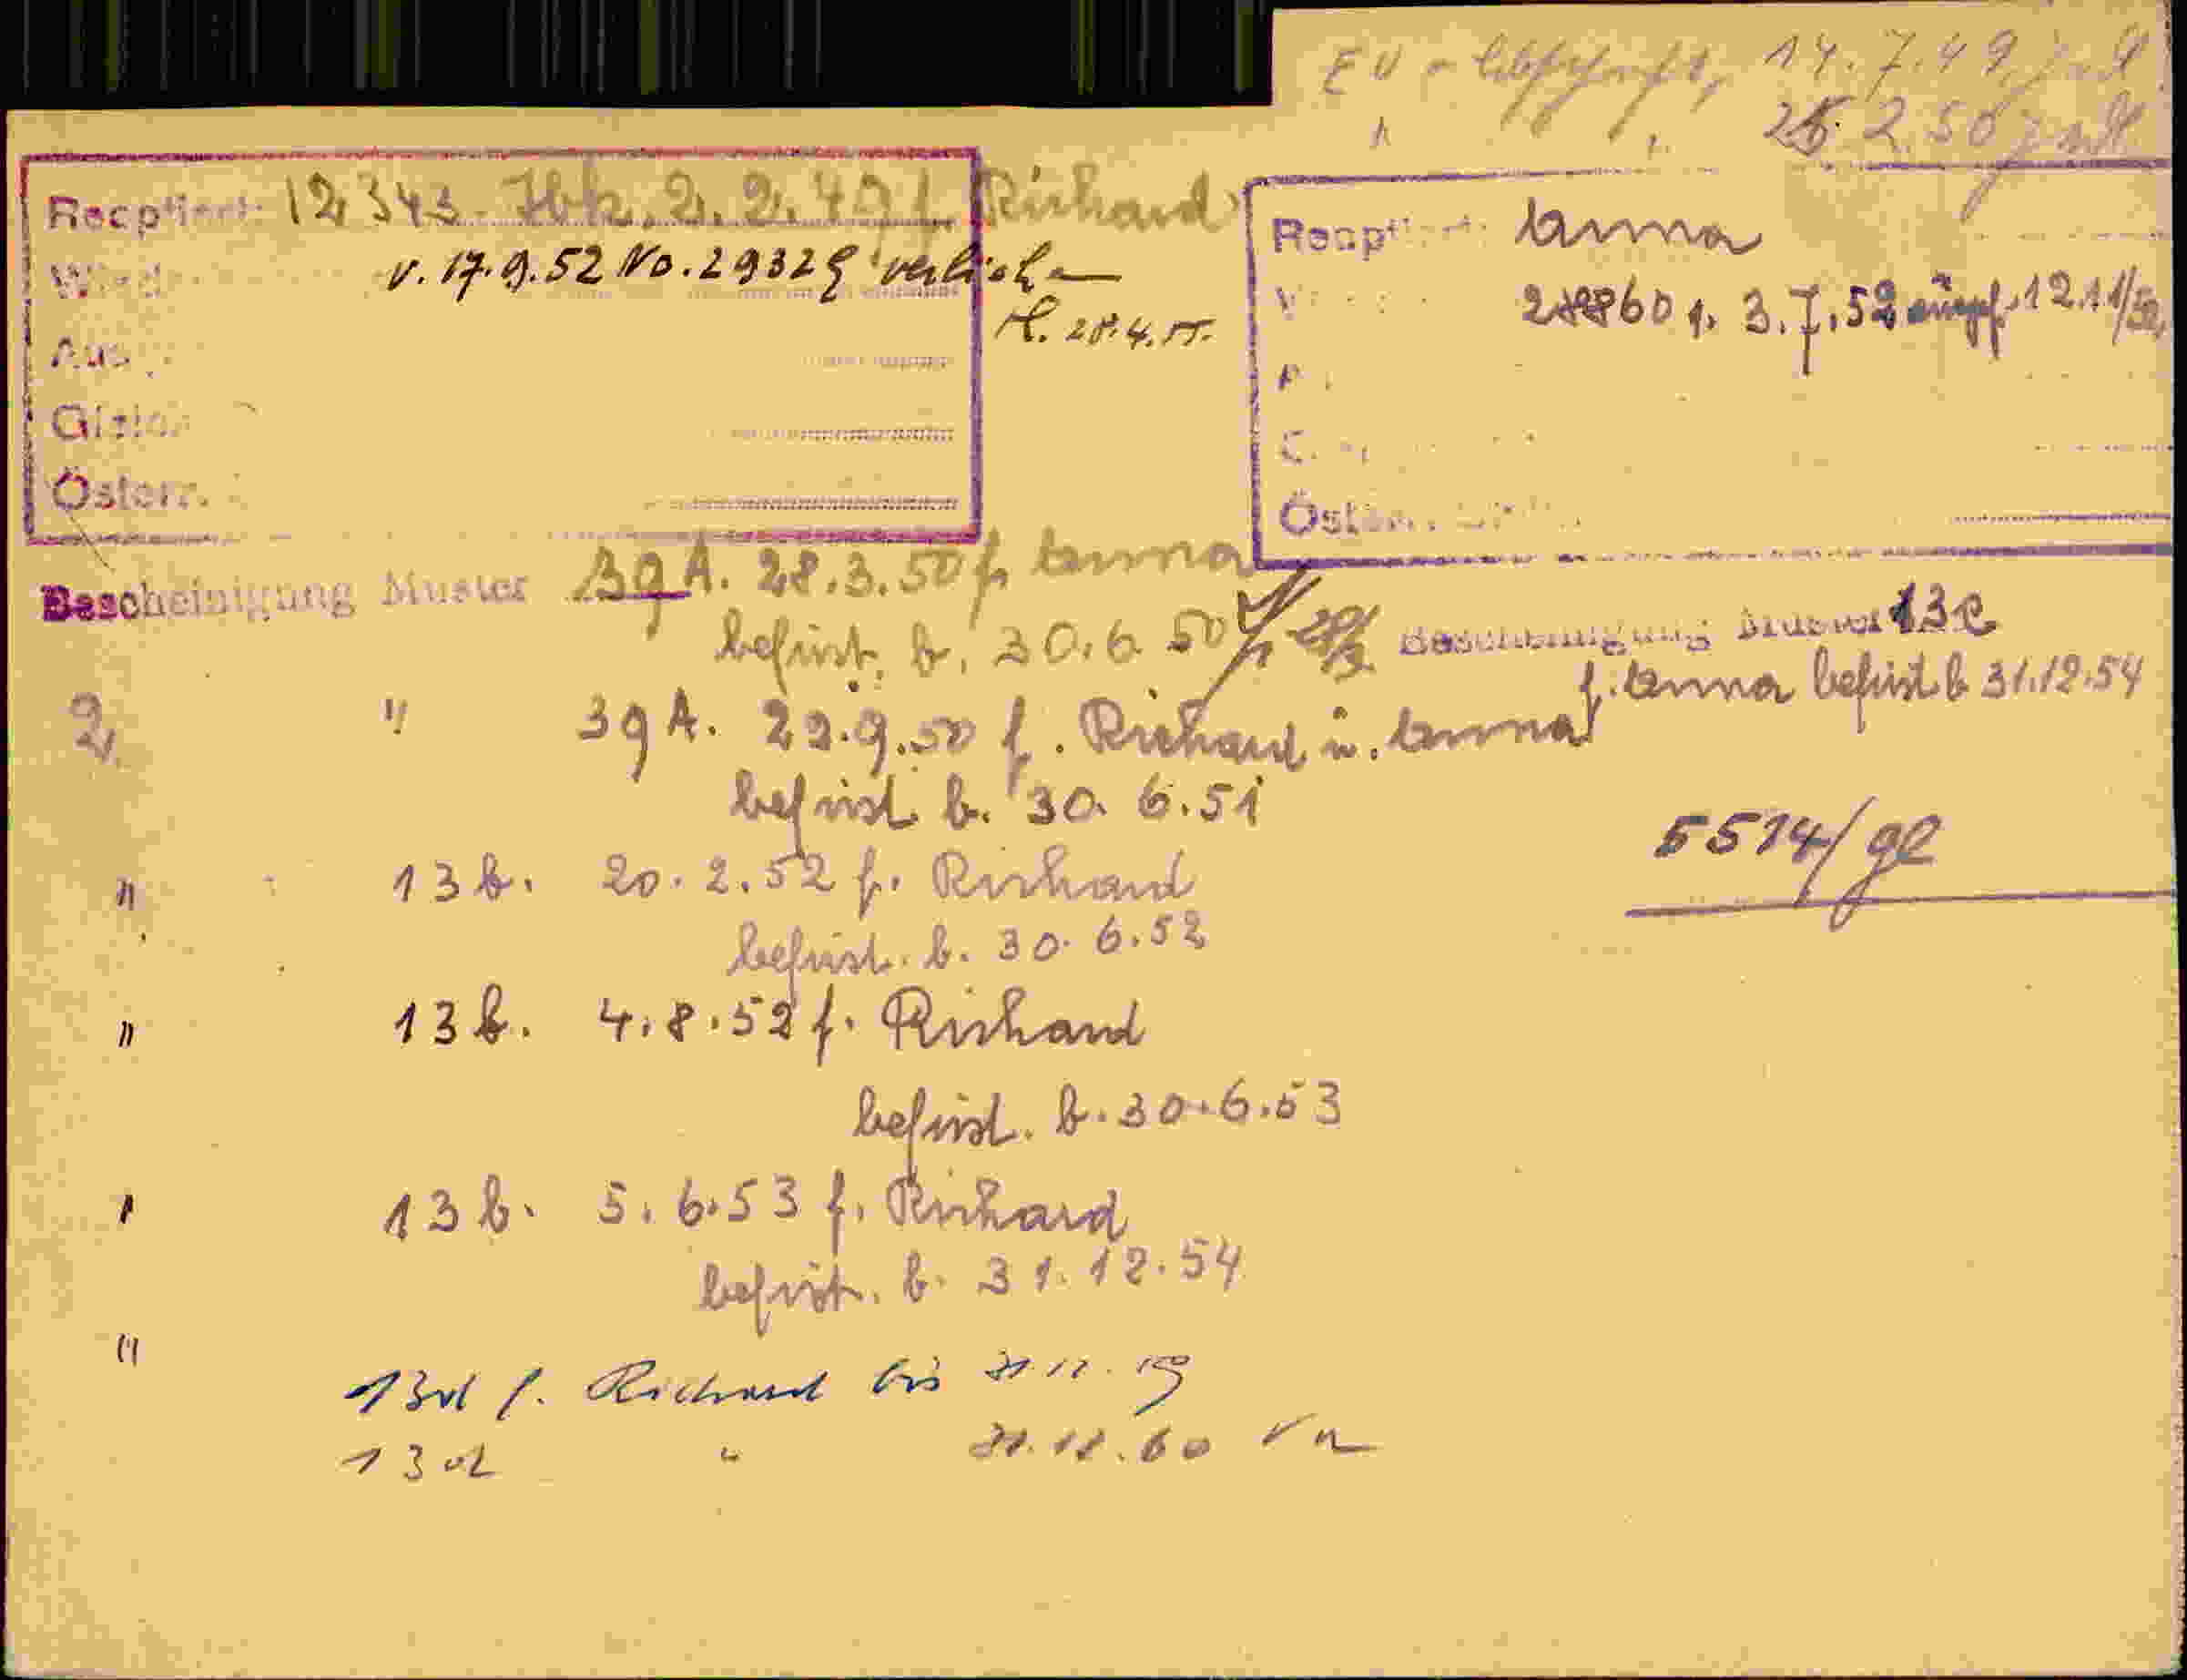 EU - Abschrift, 14.7.49
" " 25.2.50
Recptiert: 12343 Ibk. 2.2.49 f. Richard
v. 17.9.52 No. 29329 verliehen
H. 28.4.55.
Aus
Österr.
Recptiert: Anna
28860 v. 3.7.52 12.11/52
Österr.
Bescheinigung Muster 39 A. 28.3.50 f. Anna
befrist. b. 30.6.50
Bescheinigung Muster 13 e
f. Anna befrist. b 31.12.54
2. " 39 A. 29.9.50 f. Richard u. Anna
befrist b. 30.6.51
5514/gl
" 13 b. 20.2.52 f. Richard
befrist. b. 30.6.52
" 13 b. 4.8.52 f. Richard
befrist. b. 30.6.53
" 13 b. 5.6.53 f. Richard
befrist. b. 31.12.54
" 13d f. Richard bis 31.12.
13d " 31.12.60